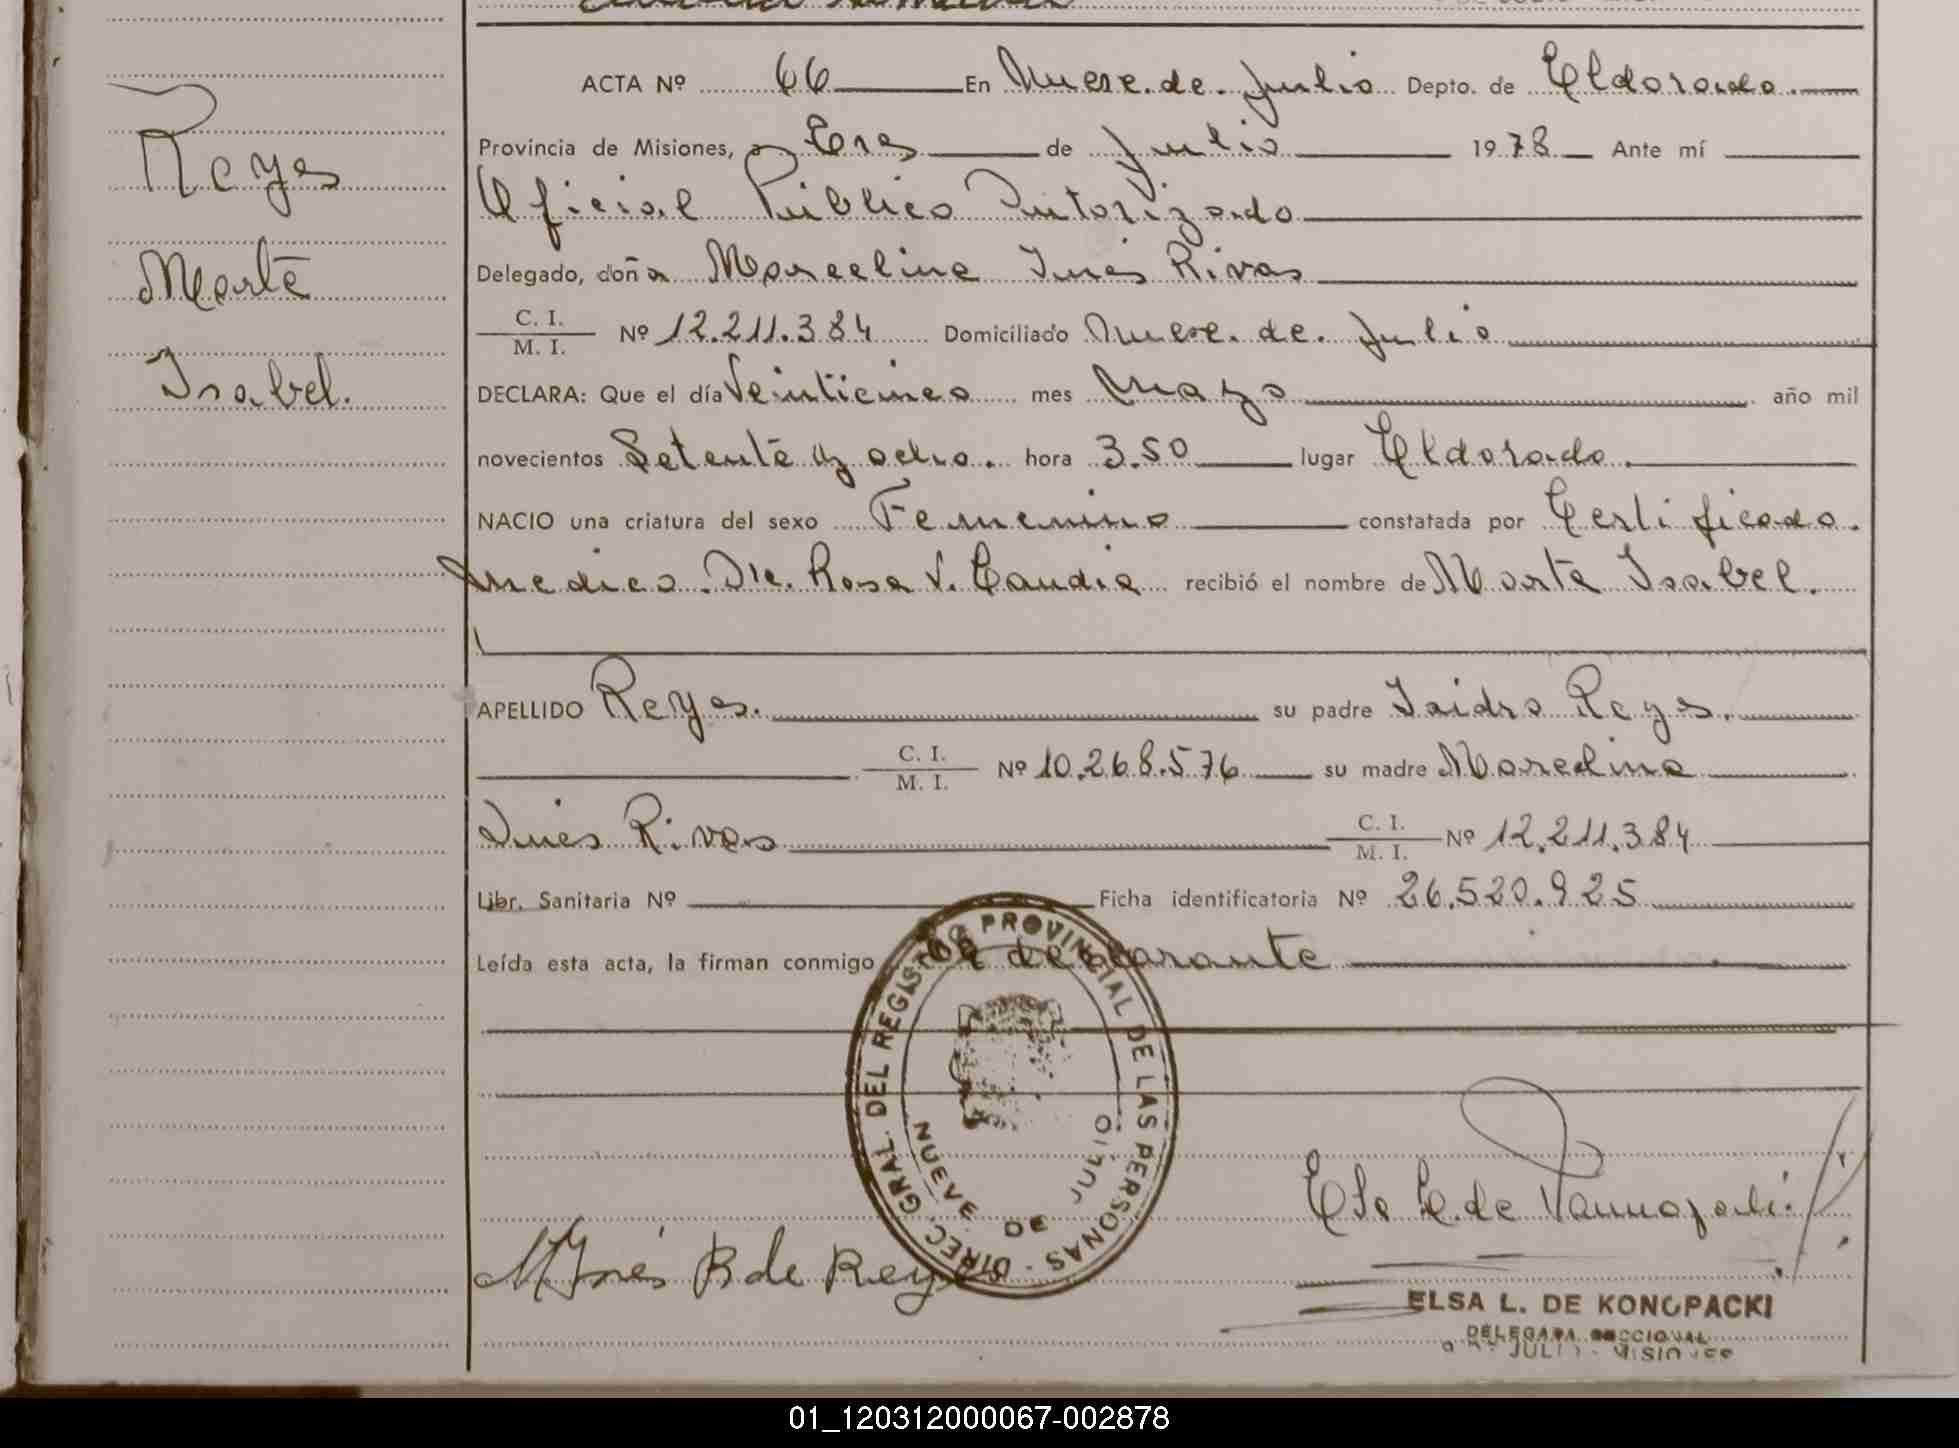 Reyes
Marta
Isabel.
ACTA Nº 66 En Nueve de Julio Depto. de Eldorado.
Provincia de Misiones, a tres de Julio 1978 Ante mí
Oficial Público Autorizado
Delegado, doña Marcelina Inés Rivas
C. I.
M. I. Nº 12.211.384 Domiciliado Nueve de Julio
DECLARA: Que el día Veinticinco mes Mayo año mil
novecientos Setenta y ocho. hora 3.50 lugar Eldorado.
NACIO una criatura del sexo Femenino constatada por Certificado
Medico. Dra. Rosa V. Candia recibió el nombre de Marta Isabel.
APELLIDO Reyes. su padre Isidro Reyes.
C. I.
M. I. Nº 10.268.576 su madre Marcelina
Inés Rivas C. I.
M. I. Nº 12.211.384
Libr. Sanitaria Nº Ficha identificatoria Nº 26.520.925
Leída esta acta, la firman conmigo la declarante
DIREC. GRAL. DEL REGISTRO PROVINCIAL DE LAS PERSONAS -
NUEVE DE JULIO
M Inés R de Reyes
ELSA L. DE KONOPACKI
DELEGADA SECCIONAL
9 DE JULIO - MISIONES
01_120312000067-002878